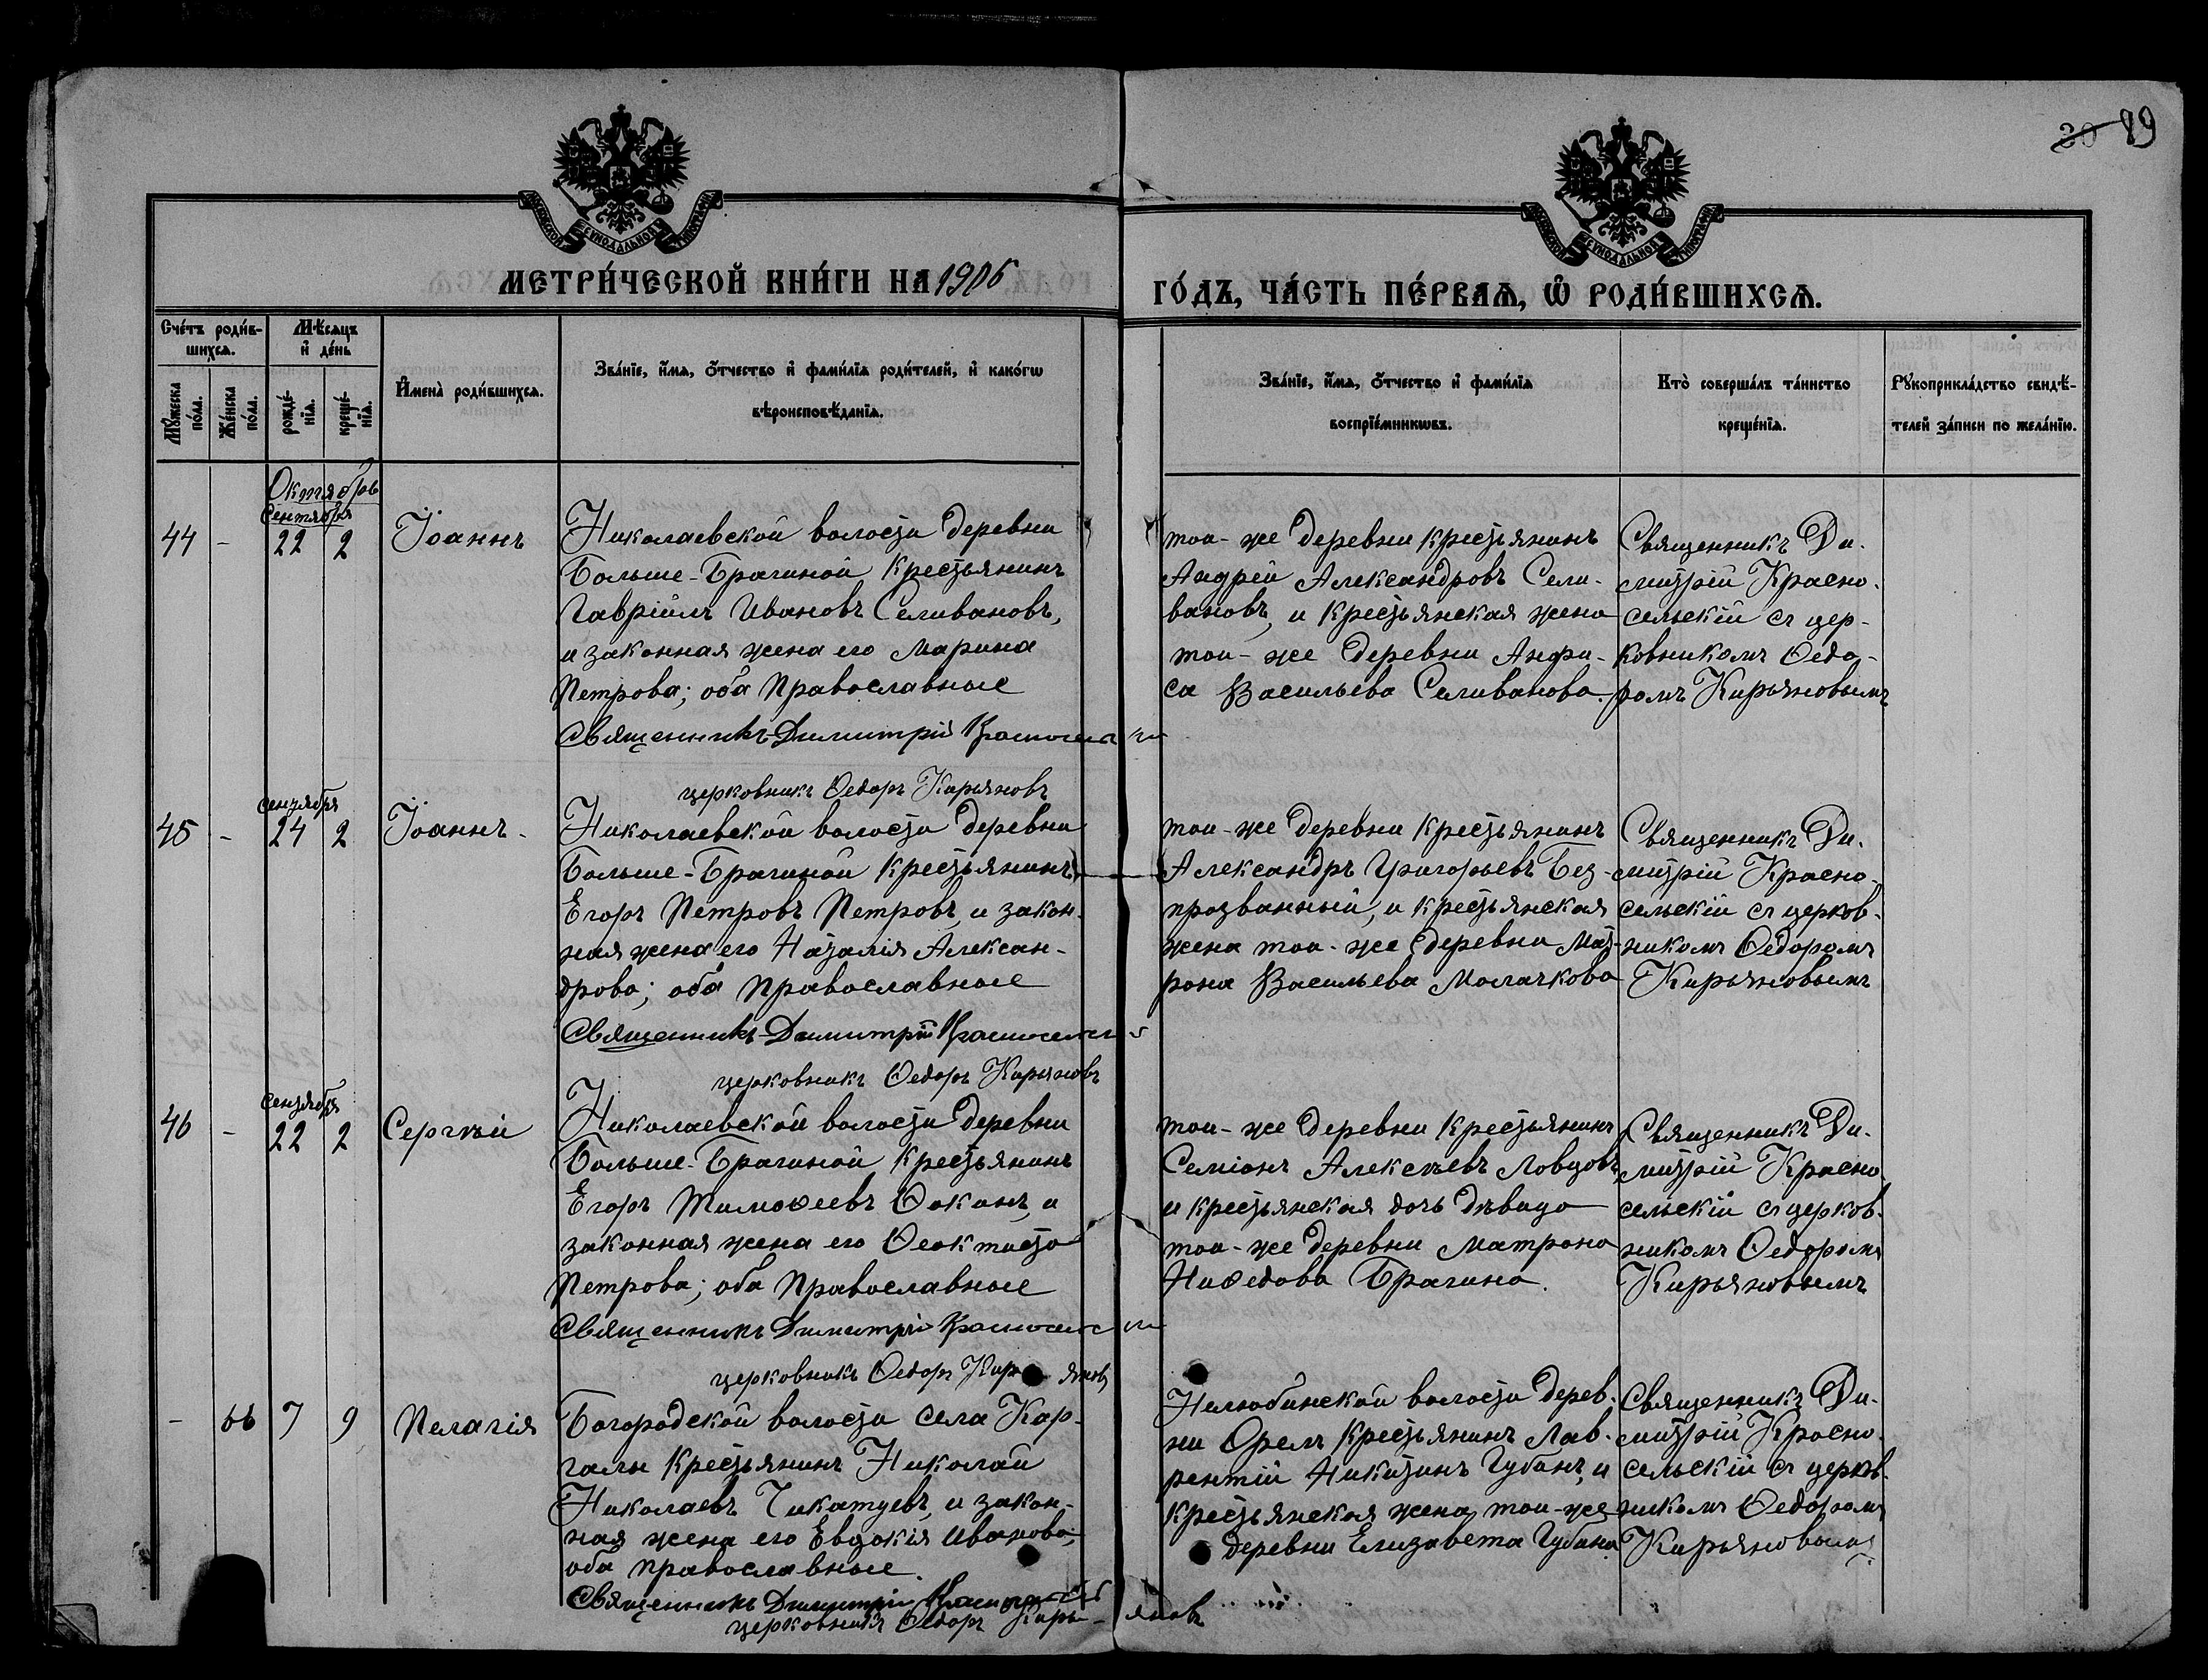 30 29
МОСКОВСКОЙ СѴНОДАЛЬНОЙ ТИПОГРАФІИ
МОСКОВСКОЙ СѴНОДАЛЬНОЙ ТИПОГРАФІИ
МЕТРИ́ЧЕСКОЙ КНИ́ГИ НА 1906
ГО́ДЪ, ЧА́СТЬ ПЕ́РВАѦ, Ѽ РОДИ́ВШИХСѦ.
Сче́тъ роди́в-
шихсѧ.
Мꙋ́жеска по́ла.
Же́нска по́ла.
Мѣ́сѧцъ
и҆ де́нь
рожде́-
нїѧ.
креще́-
нїѧ.
И҆мена̀ роди́вшихсѧ.
Зва́нїе, и҆́мѧ, ѻ҆́тчество и҆ фами́лїѧ роди́телей, и҆ како́гѡ
вѣроисповѣ́данїѧ.
Зва́нїе, и҆́мѧ, ѻ҆́тчество и҆ фами́лїѧ
воспрїе́мникѡвъ.
Кто̀ соверша́лъ та́инство
креще́нїѧ.
Рꙋкоприкла́дство свидѣ́-
телей за́писи по жела́нїю.
Октябрь
Сентября
44 - 22 2 Іоаннъ
Николаевской волости деревни
Больше-Брагиной крестьянинъ
Гавріилъ Ивановъ Селивановъ,
и законная жена его Марина
Петрова; оба православные
Священникъ Димитрій Красносельскій
церковникъ Ѳедоръ Кирьяновъ
той-же деревни крестьянинъ
Андрей Александровъ Сели-
вановъ, и крестьянская жена
той-же деревни Анфи-
са Васильева Селиванова.
Священникъ Ди-
митрій Красно-
сельскій съ цер-
ковникомъ Ѳедо-
ромъ Кирьяновымъ
сентября
45 - 24 2 Іоаннъ.
Николаевской волости деревни
Больше-Брагиной крестьянинъ
Егоръ Петровъ Петровъ, и закон-
ная жена его Наталія Алексан-
дрова; оба православные
Священникъ Димитрій Красносельскій
церковникъ Ѳедоръ Кирьяновъ
той-же деревни крестьянинъ
Александръ Григорьевъ Без-
прозванный, и крестьянская
жена той-же деревни Мат-
рона Васильева Молачкова
Священникъ Ди-
митрій Красно-
сельскій съ церков-
никомъ Ѳедоромъ
Кирьяновымъ
сентября
46 - 22 2 Сергѣй
Николаевской волости деревни
Больше-Брагиной крестьянинъ
Егоръ Тимоѳеевъ Ѳокинъ, и
законная жена его Ѳеоктиста
Петрова; оба православные
Священникъ Димитрій Красносельскій
церковникъ Ѳедоръ Кирьяновъ
той-же деревни крестьянинъ
Семіонъ Алексѣевъ Ловцовъ,
и крестьянская дочь дѣвица
той-же деревни Матрона
Ниѳедова Брагина.
Священникъ Ди-
митрій Красно-
сельскій съ церков-
никомъ Ѳедоромъ
Кирьяновымъ
- 66 7 9 Пелагія
Богородской волости села Кар-
галы крестьянинъ Николай
Николаевъ Чикатуевъ, и закон-
ная жена его Евдокія Иванова;
оба православные.
Священникъ Димитрій Красносельскій
церковникъ Ѳедоръ Кирь-яновъ
Нелюбинской волости дерев-
ни Орелъ крестьянинъ Лав-
рентій Никитинъ Губинъ, и
крестьянская жена той-же
деревни Елизавета Губина
Священникъ Ди-
митрій Красно-
сельскій съ церков-
никомъ Ѳедоромъ
Кирьяновымъ